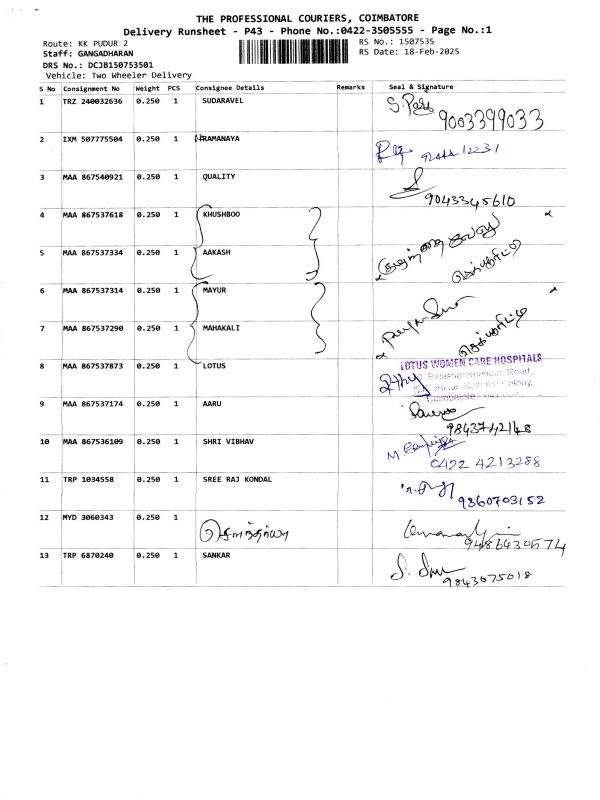 THE PROFESSIONAL COURIERS, COIMBATORE
Delivery Runsheet - P43 - Phone No.:0422-3505555 - Page No.:1
Route: KK PUDUR 2
RS No.: 1507535
Staff: GANGADHARAN
RS Date: 18-Feb-2025
DRS No.: DCJB150753501
Vehicle: Two Wheeler Delivery
S No Consignment No Weight PCS Consignee Details Remarks Seal & Signature
1 TRZ 240032636 0.250 1 SUDARAVEL
9003399033
2 IXM 507775504 0.250 1 RAMANAYA
3 MAA 867540921 0.250 1 QUALITY
9043345610
4 MAA 867537618 0.250 1 KHUSHBOO
5 MAA 867537334 0.250 1 AAKASH
6 MAA 867537314 0.250 1 MAYUR
7 MAA 867537290 0.250 1 MAHAKALI
8 MAA 867537873 0.250 1 LOTUS LOTUS WOMEN CARE HOSPITALS
9 MAA 867537174 0.250 1 AARU
9843742148
10 MAA 867536109 0.250 1 SHRI VIBHAV
0422 4213288
11 TRP 1034558 0.250 1 SREE RAJ KONDAL
9360703152
12 MYD 3060343 0.250 1
9486430574
13 TRP 6870240 0.250 1 SANKAR
9843075018